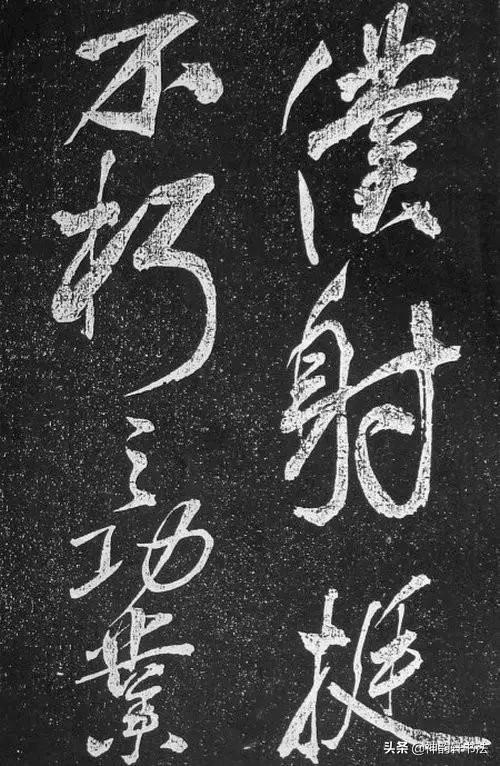 僕射挺
不朽之功業
头条 @神韵轩书法